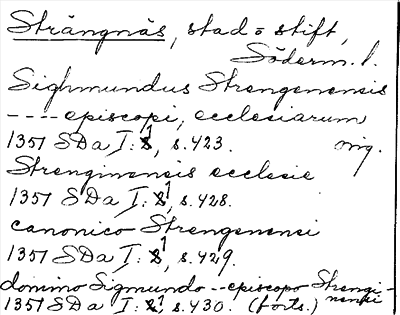 Strängnäs, stad o stift,
Söderm. l.
Sighmundus Strengenensis
---- episcopi, ecclesiarum
1351 SDa I: 1, s. 423. orig.
Strenginensis ecclesie
1351 SDa I: 1, s. 428.
canonico Strengenensi
1351 SDa I: 1, s. 429.
domino Sigmundo -- episcopo Strengi-
nensi
1351 SDa I: 1, s. 430. (forts.)